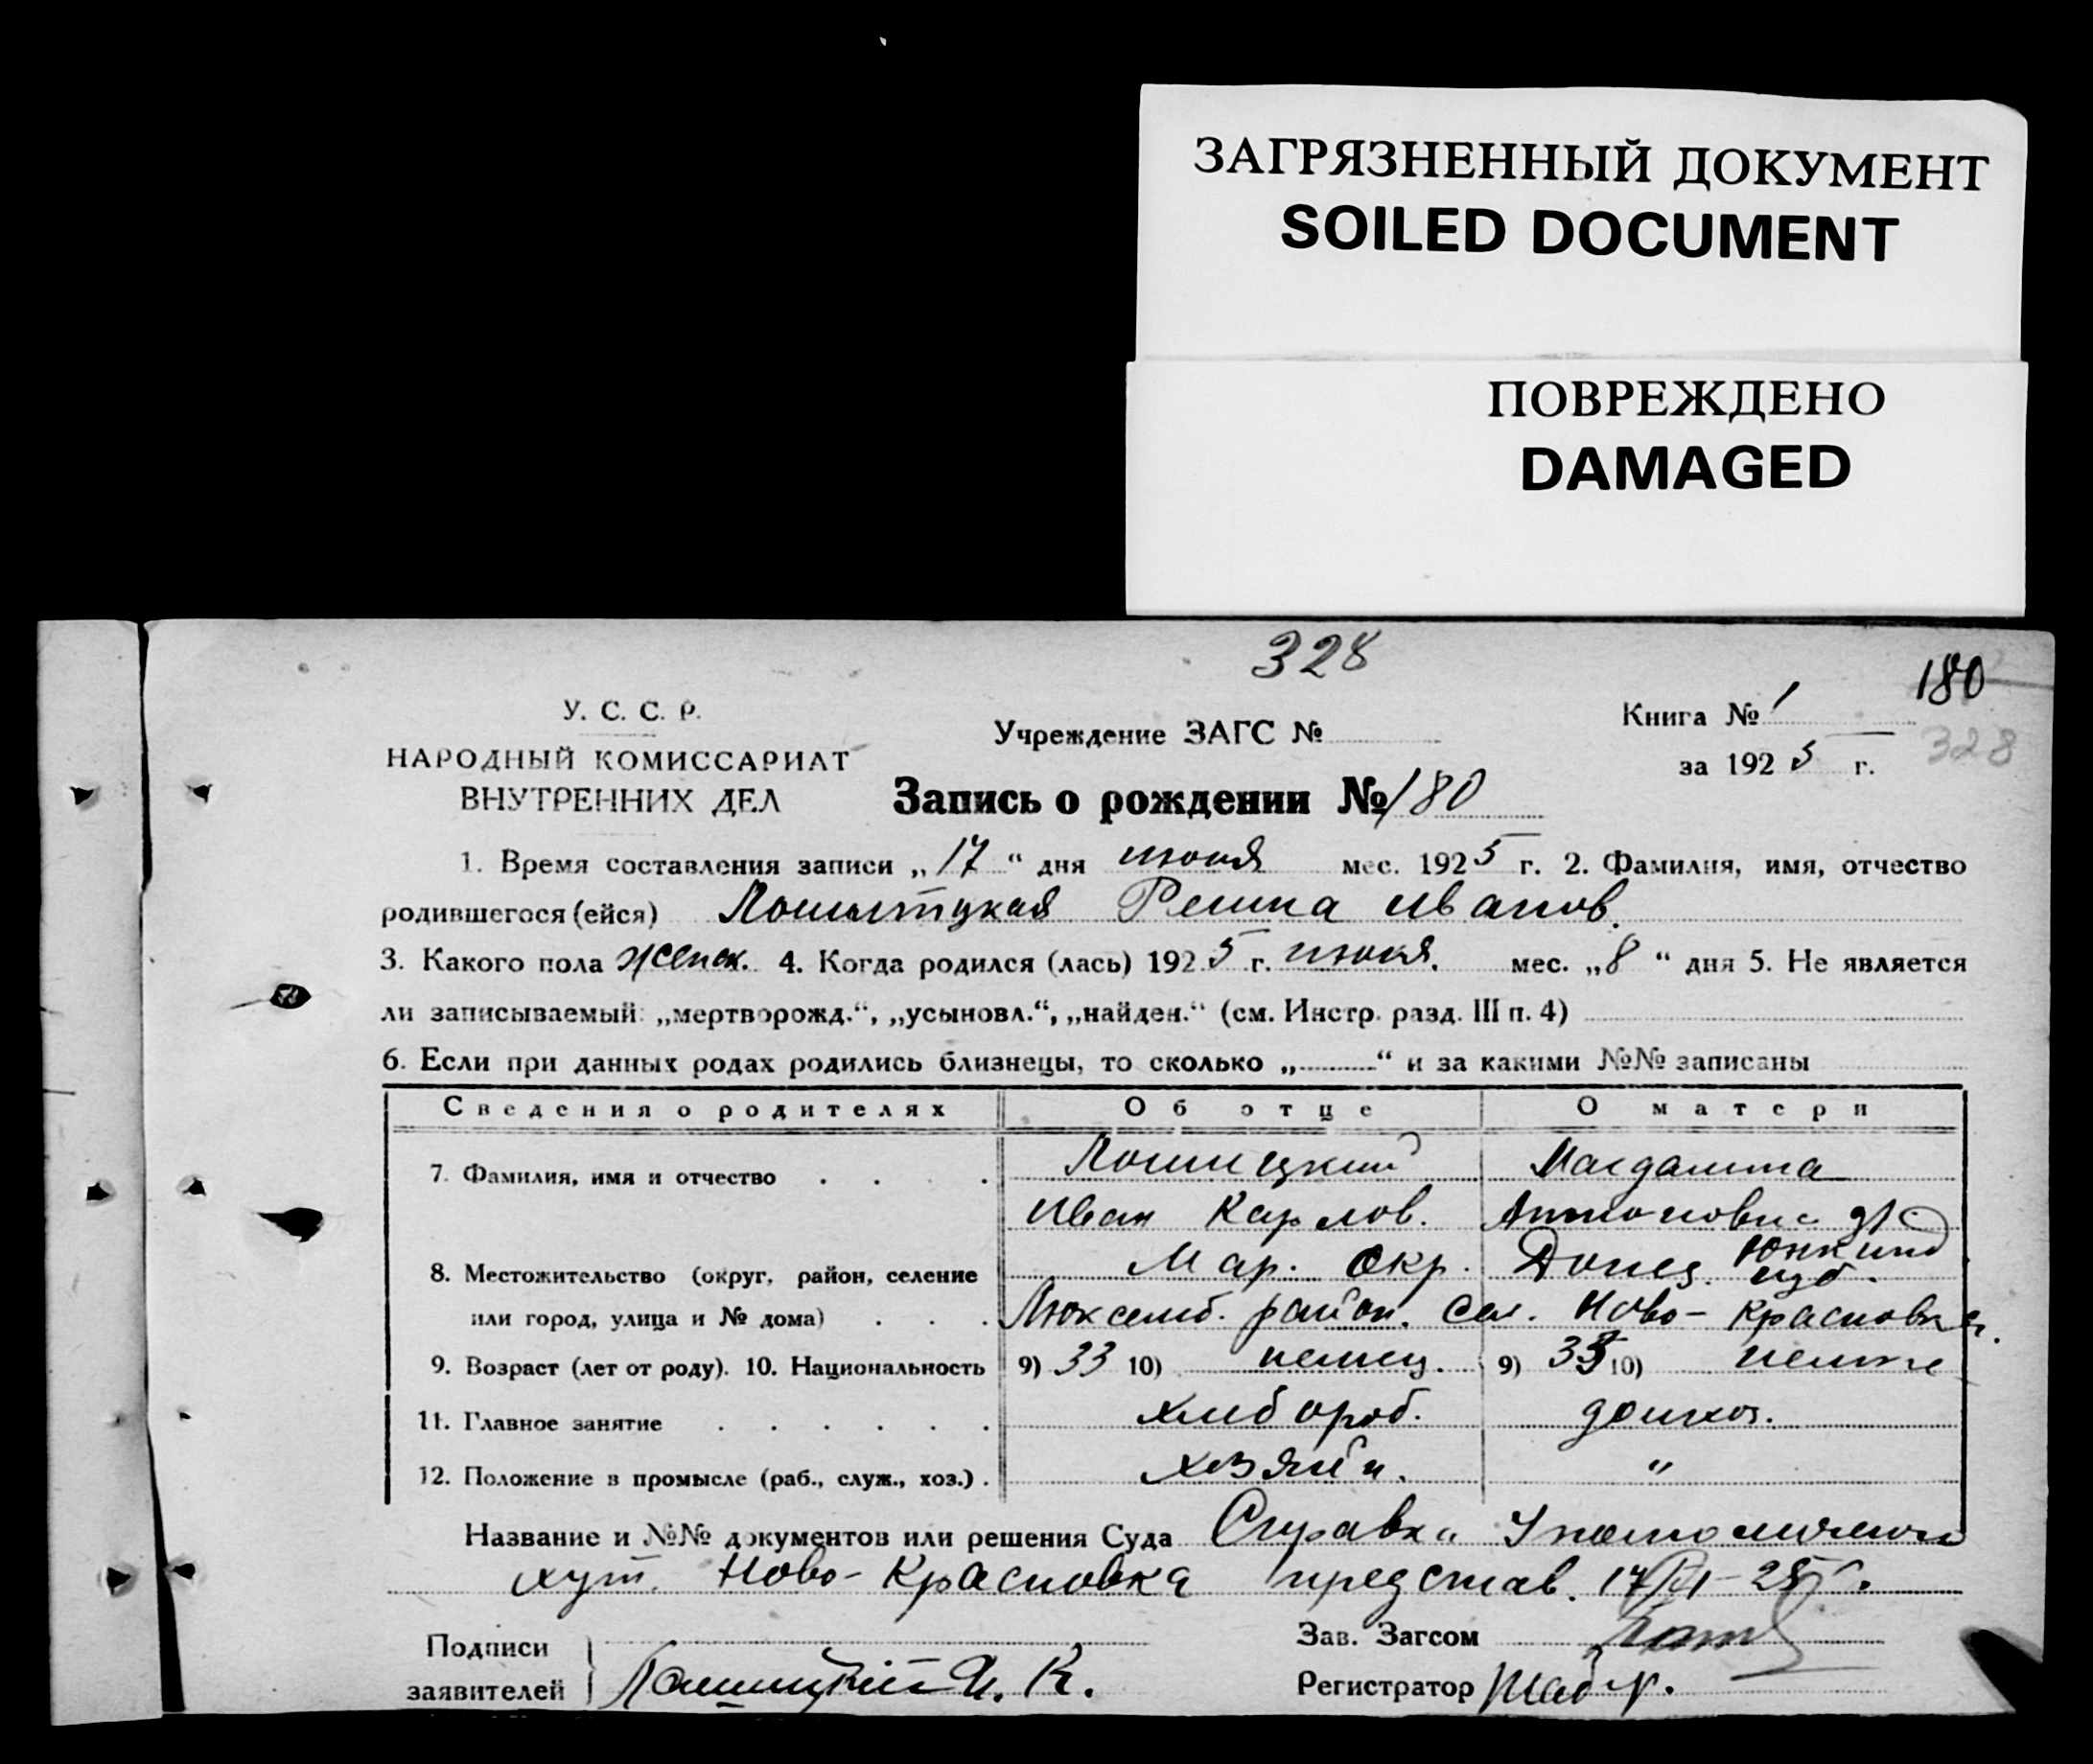 ЗАГРЯЗНЕННЫЙ ДОКУМЕНТ
SOILED DOCUMENT
ПОВРЕЖДЕНО
DAMAGED
328
180
У. С. С. Р.
НАРОДНЫЙ КОМИССАРИАТ
ВНУТРЕННИХ ДЕЛ
Учреждение ЗАГС №
Книга № 1
328
за 1925 г.
Запись о рождении № 180
1. Время составления записи „17“ дня июня мес. 1925 г. 2. Фамилия, имя, отчество
родившегося (ейся) Иванов.
3. Какого пола женск. 4. Когда родился (лась) 1925 г. июня. мес. „8“ дня 5. Не является
ли записываемый: „мертворожд.“, „усыновл.“, „найден.“ (см. Инстр. разд. III п. 4)
6. Если при данных родах родились близнецы, то сколько „ “ и за какими №№ записаны
Сведения о родителях Об отце О матери
7. Фамилия, имя и отчество
Иван Карлов.
8. Местожительство (округ, район, селение Мар. Окр. Донец. губ.
или город, улица и № дома) Люксемб. район. Сел. Ново-Красновка.
9. Возраст (лет от роду). 10. Национальность 9) 33 10) немец. 9) 10) немка
11. Главное занятие хлебороб. домхоз.
12. Положение в промысле (раб., служ., хоз.) хозяин. "
Название и №№ документов или решения Суда Справка Уполномочен
хут. Ново-Красновка представ. 17/VI-25 г.
Подписи
заявителей И. К.
Зав. Загсом
Регистратор